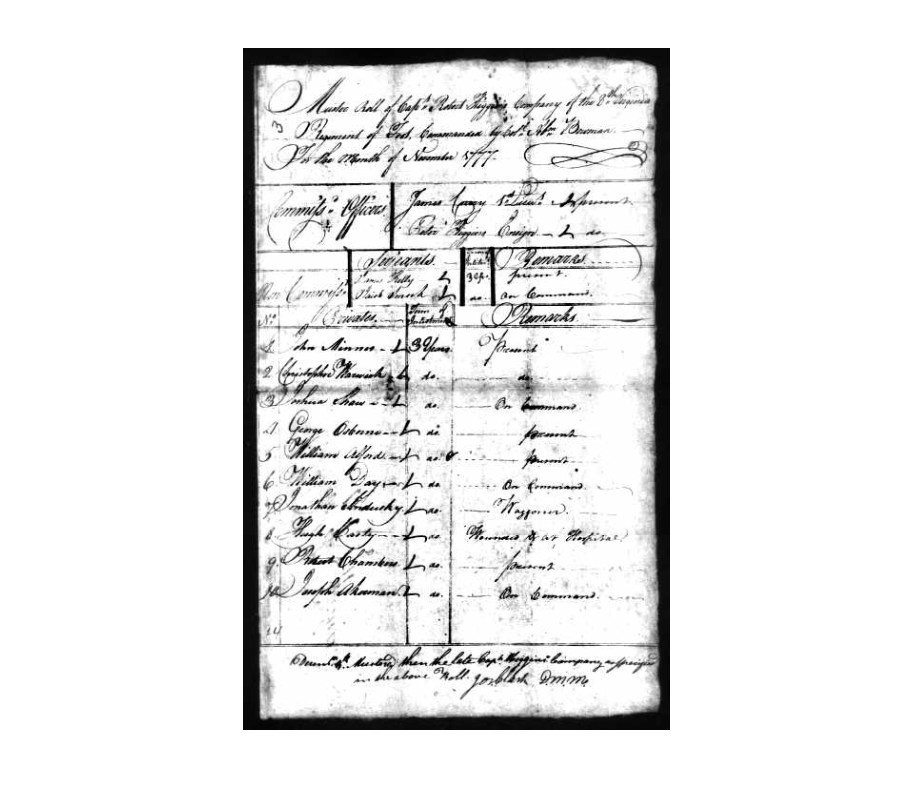 Muster Roll of Capt. Robert Higgins Company of the 8th Virginia
3
Regiment of Foot, Commanded by Col. Abm Bowman
For the Month of November 1777.
Commissd. Officers
James 1st Lieut.
Petr. Higgins Ensign do.
Serjeants Remarks
Non Commissd. Kelly 3 present
do. On Command
No. Privates Term Remarks
1 John Minner 3 Years present
2 Christopher Warwick do. do.
3 Joshua Shaw do. On Command
4 George Osborne do. present
5 William Alford do. present
6 William Day do. On Command
7 Jonathan do. Waggoner
8 Hugh Carty do. Wounded & at Hospital
9 Robert Chambers do. present
10 Joseph Akerman do. On Command
Decemr. Mustered then the late Capt. Higgins Company as
in the above Roll. Jos. Clark D.M.M.